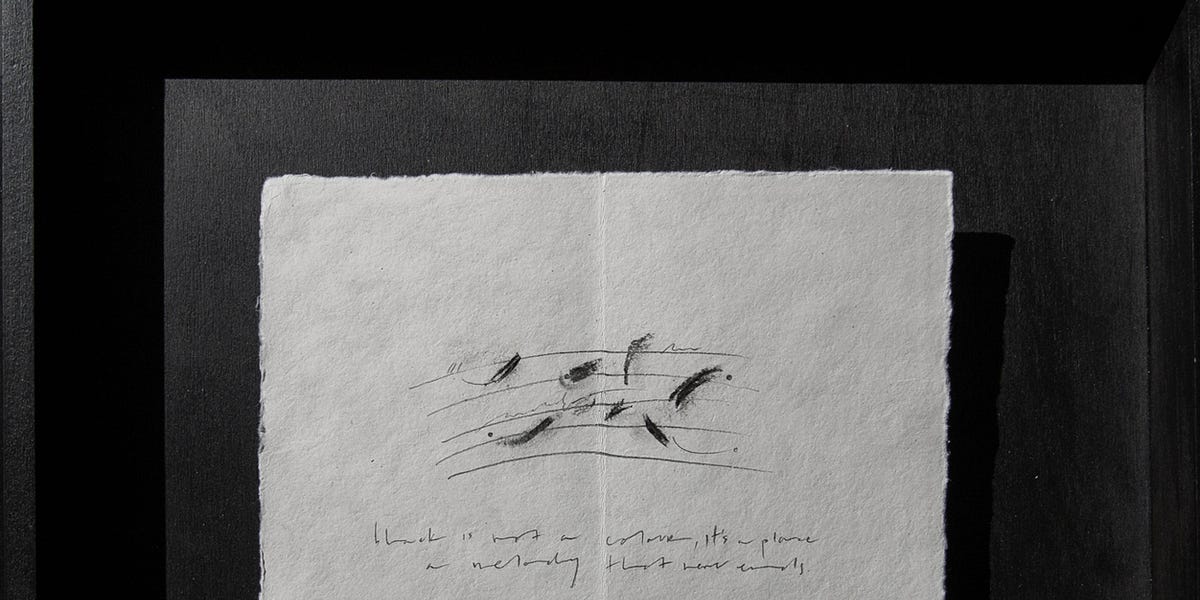 black is not a colour, it's a place
a melody that never ends.